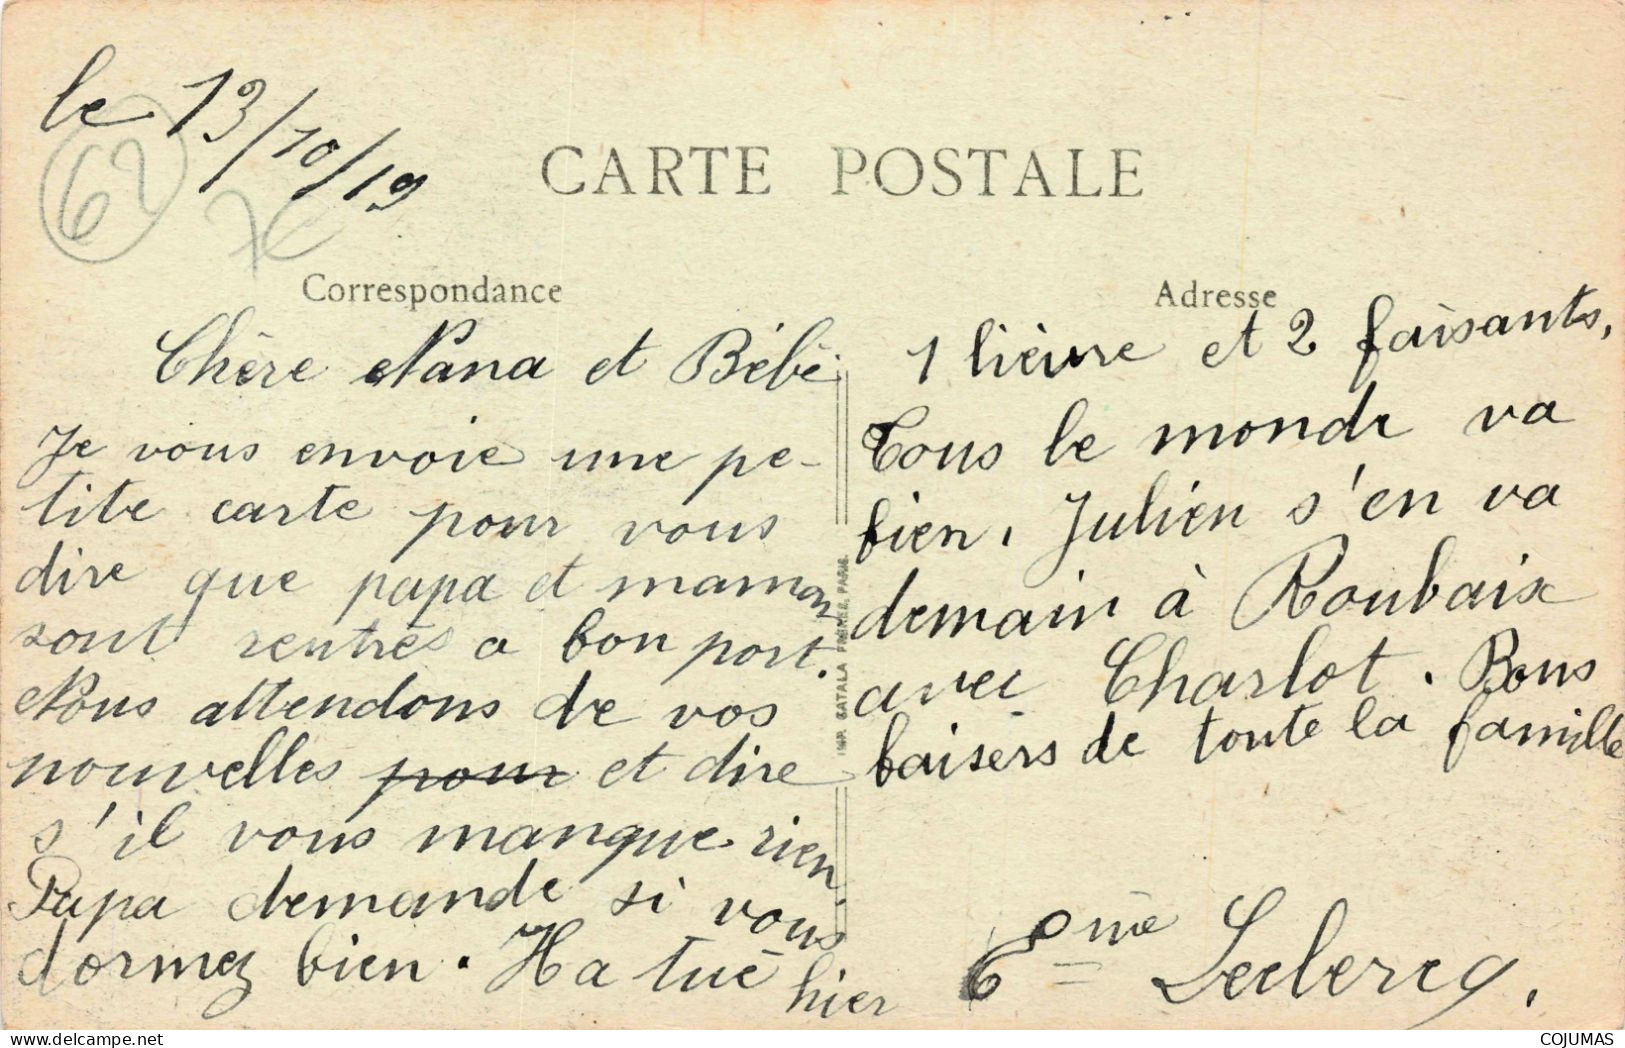 le 13/10/19
62
CARTE POSTALE
Correspondance
Chère Nana et Bébé
Je vous envoie une pe-
tite carte pour vous
dire que papa et maman
sont rentrés a bon port.
Nous attendons de vos
nouvelles pour et dire
s'il vous manque rien
Papa demande si vous
dormez bien. Ha tué
hier
IMP. CATALA FRERES, PARIS
Adresse
1 lièvre et 2 faisants,
Tous le monde va
bien. Julien s'en va
demain à Roubaix
avec Charlot. Bons
baisers de toute la famille
Leclercq.
COJUMAS